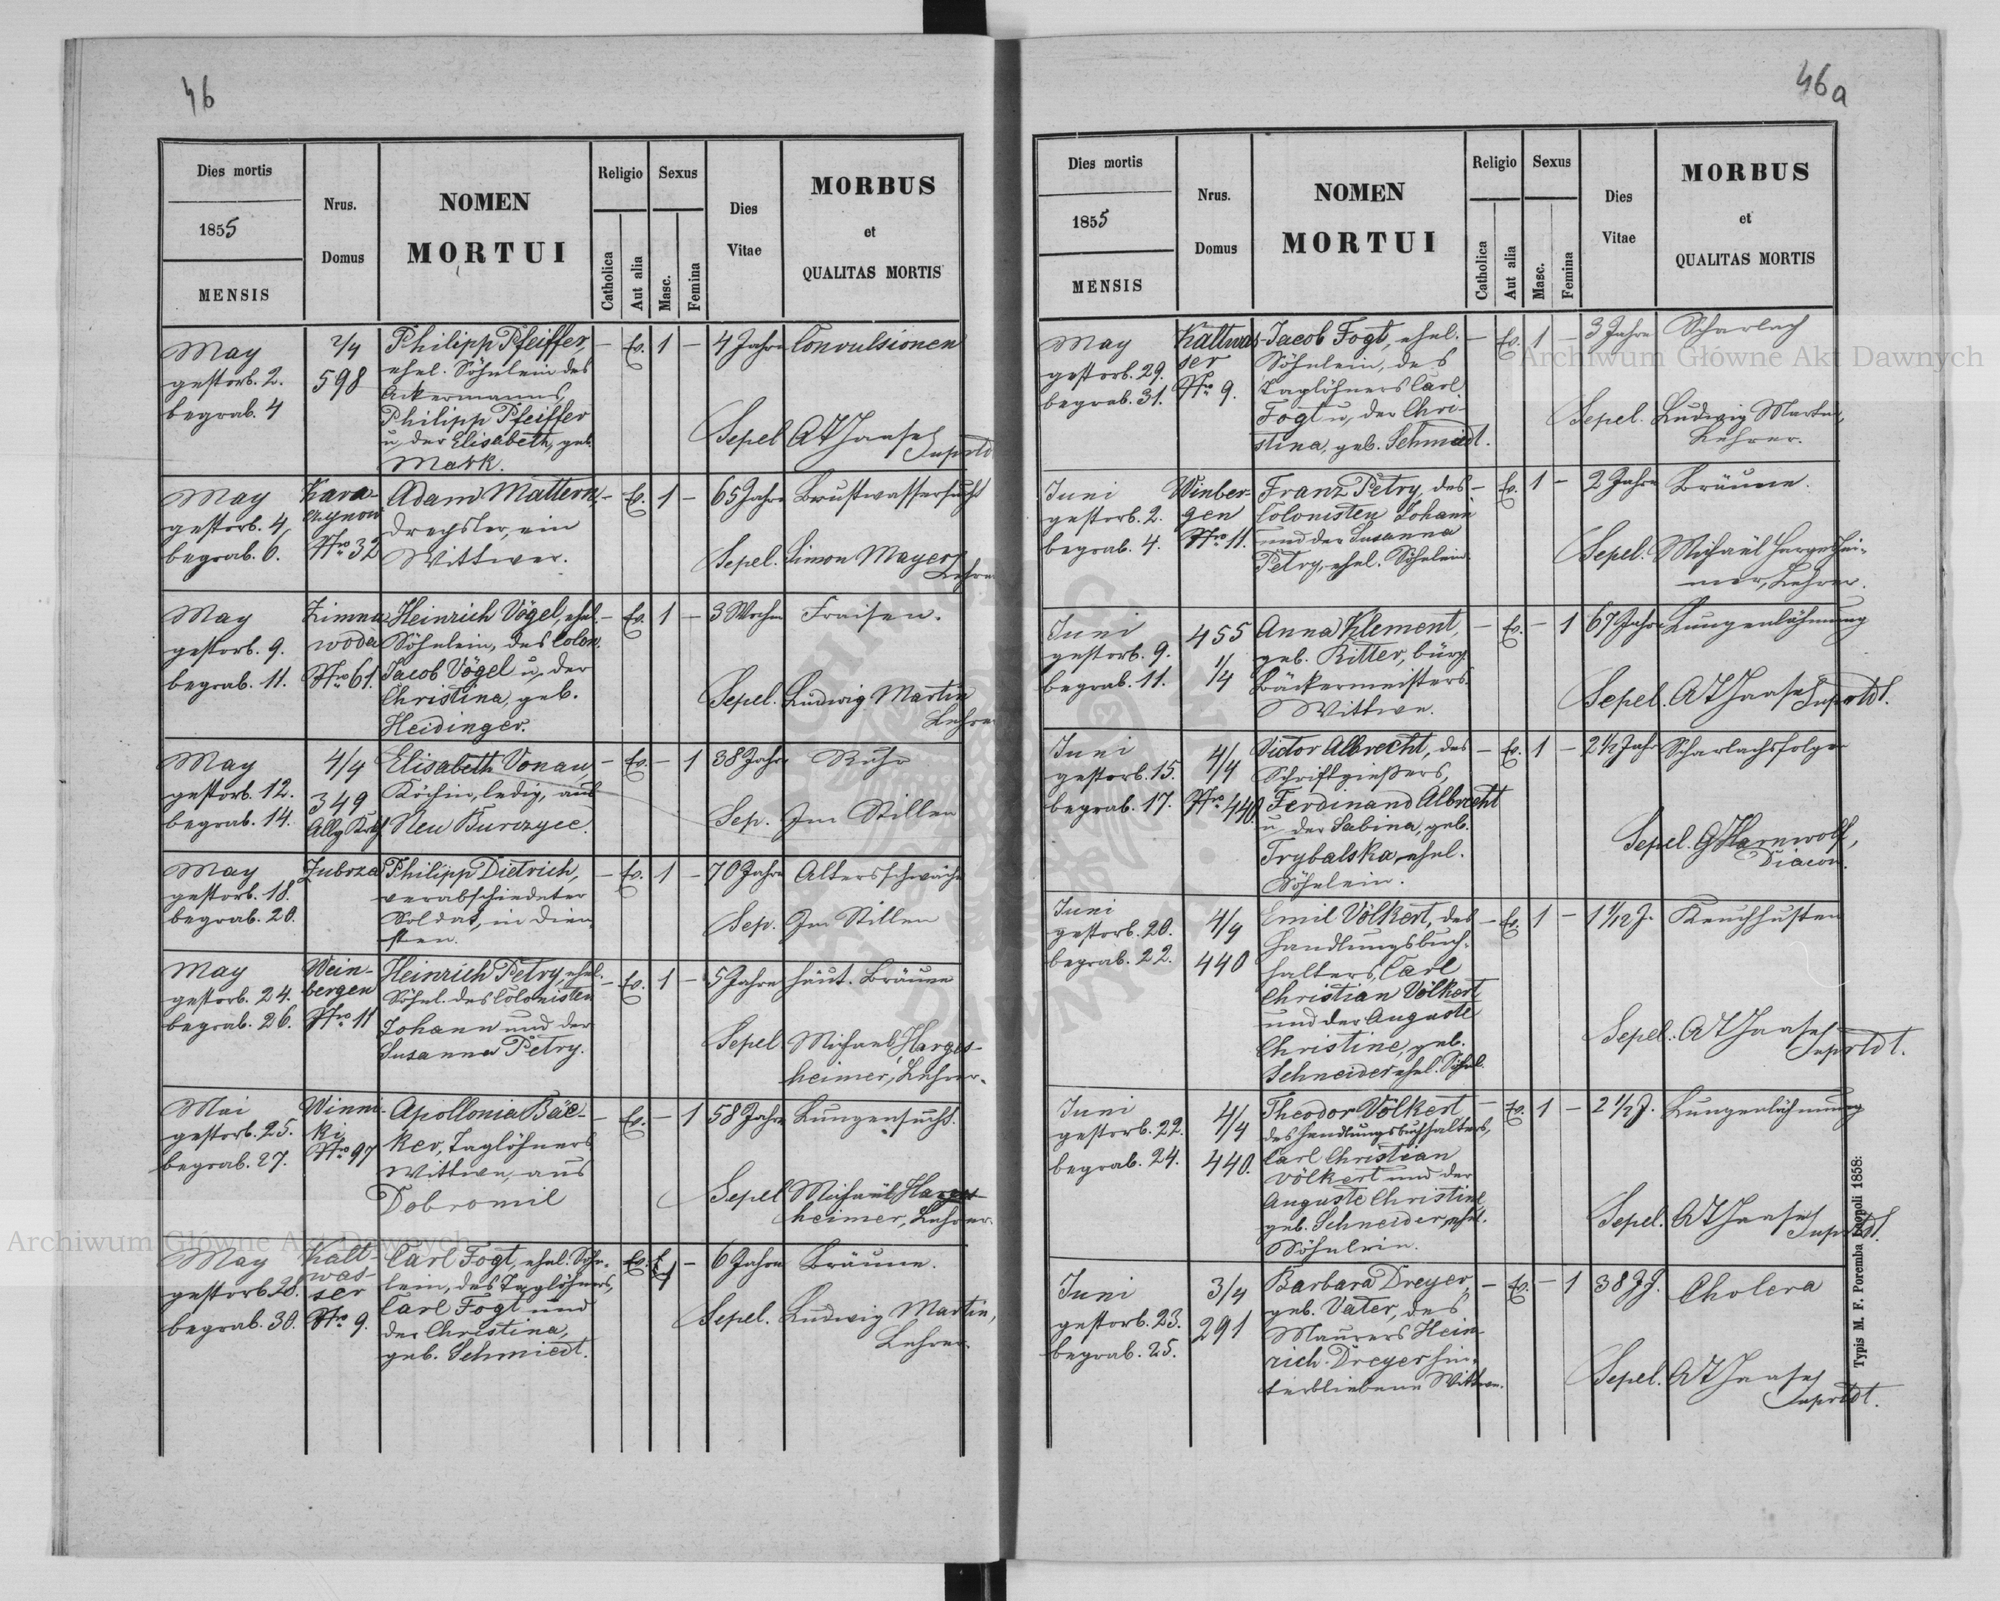 46
Dies mortis
1855
MENSIS
Nrus.
Domus
NOMEN
MORTUI
Religio
Catholica
Aut alia
Sexus
Masc.
Femina
Dies
Vitae
MORBUS
et
QUALITAS MORTIS
May
gestorb. 2.
begrab. 4
2/4
598
Philipp Pfeiffer,
ehel. Söhnlein des
Ackermanns
Philipp Pfeiffer
u. der Elisabeth, geb.
Mark.
— Ev. 1 —
4 Jahre
Convulsionen
Sepel. A T Haase
Suprtdt
May
gestorb. 4,
begrab. 6.
Nro 32
Adam Mattern,
Drechsler, ein
Wittwer.
— Ev. 1 —
65 Jahre
Brustwassersucht
Sepel. Simon Mayer,
Lehrer
May
gestorb. 9.
begrab. 11.
Zimna
woda
Nro 61.
Heinrich Vögel, ehel.
Söhnlein, des Colon.
Jacob Vögel u. der
Christina, geb.
Heidinger.
— Ev. 1 —
3 Wochen
Fraisen.
Sepel. Ludwig Martin
Lehrer
May
gestorb. 12.
begrab. 14.
4/4
349
Elisabeth Vonau,
Köchin, ledig, aus
Neu Burczyce.
— Ev. — 1
38 Jahre
Ruhr
Sep. Im Stillen
May
gestorb. 18.
begrab. 20.
Zubrza
Philipp Dietrich,
verabschiedeter
Soldat, in Dien-
sten.
— Ev. 1 —
70 Jahre
Altersschwäche
Sep. Im Stillen
May
gestorb. 24.
begrab. 26.
Wein-
bergen
Nro 11
Heinrich Petry, ehel.
Söhnl. des Colonisten
Johann und der
Susanna Petry.
— Ev. 1 —
5 Jahre
häut. Bräune
Sepel. Michael Harges-
heimer, Lehrer.
Mai
gestorb. 25.
begrab. 27.
Winni-
ki
Nro 97
Apollonia Bäc-
ker, Taglöhners
Wittwe, aus
Dobromil
— Ev. — 1
58 Jahre
Lungensucht.
Sepel. Michael Harges-
heimer, Lehrer.
May
gestorb. 28.
begrab. 30.
Kalt-
was-
ser
Nro 9.
Carl Fogt, ehel. Söhn-
lein, des Taglöhners,
Carl Fogt und
der Christina,
geb. Schmiedt.
Ev. 1 —
6 Jahre
Bräune.
Sepel. Ludwig Martin,
Lehrer.
46a
Dies mortis
1855
MENSIS
Nrus.
Domus
NOMEN
MORTUI
Religio
Catholica
Aut alia
Sexus
Masc.
Femina
Dies
Vitae
MORBUS
et
QUALITAS MORTIS
May
gestorb. 29.
begrab. 31.
Kaltwas-
ser
Nro 9.
Jacob Fogt, ehel.
Söhnlein, des
Taglöhners Carl
Fogt u. der Chri-
stina, geb. Schmiedt.
— Ev. 1 —
3 Jahre
Scharlach
Sepel. Ludwig Martin,
Lehrer.
Juni
gestorb. 2.
begrab. 4.
Winber-
gen
Nro 11.
Franz Petry, des
Colonisten Johann
und der Susanna
Petry, ehel. Söhnlein.
— Ev. 1 —
2 Jahre
Bräune.
Sepel. Michaël Hargeshei-
mer, Lehrer.
Juni
gestorb. 9.
begrab. 11.
455
1/4
Anna Klement,
geb. Ritter, bürg.
Bäckermeisters
Wittwe.
— Ev. — 1
67 Jahre
Lungenlähmung
Sepel. A T Haase
Suprtdt.
Juni
gestorb. 15.
begrab. 17.
4/4
Nro 440
Victor Albrecht, des
Schriftgießers,
Ferdinand Albrecht
u. der Sabina, geb.
Trybalska, ehel.
Söhnlein.
— Ev. 1 —
2 1/2 Jahr
Scharlachsfolgen
Sepel. G Harnwolf,
Diacon.
Juni
gestorb. 20.
begrab. 22.
4/4
440
Emil Völkert, des
Handlungsbuch-
halters, Carl
Christian Völkert
und der Auguste
Christine, geb.
Schneider ehel. Söhnl.
— Ev. 1 —
1 1/12 J.
Keuchhusten
Sepel. A T Haase
Suprtdt.
Juni
gestorb. 22.
begrab. 24.
4/4
440.
Theodor Völkert
des Handlungsbuchhalters,
Carl Christian
Völkert und der
Auguste Christine
geb. Schneider, ehel.
Söhnlein.
— Ev. 1 —
2 1/2 J.
Lungenlähmung
Sepel. A T Haase
Suprtdt.
Juni
gestorb. 23.
begrab. 25.
3/4
291
Barbara Dreyer,
geb. Vater, des
Maurers Hein-
rich Dreyer hin-
terbliebene Wittwe.
— Ev. — 1
38 J.
Cholera
Sepel. A T Haase
Suprtdt.
Typis M. F. Poremba Leopoli 1858:
Archiwum Główne Akt Dawnych
Archiwum Główne Akt Dawnych